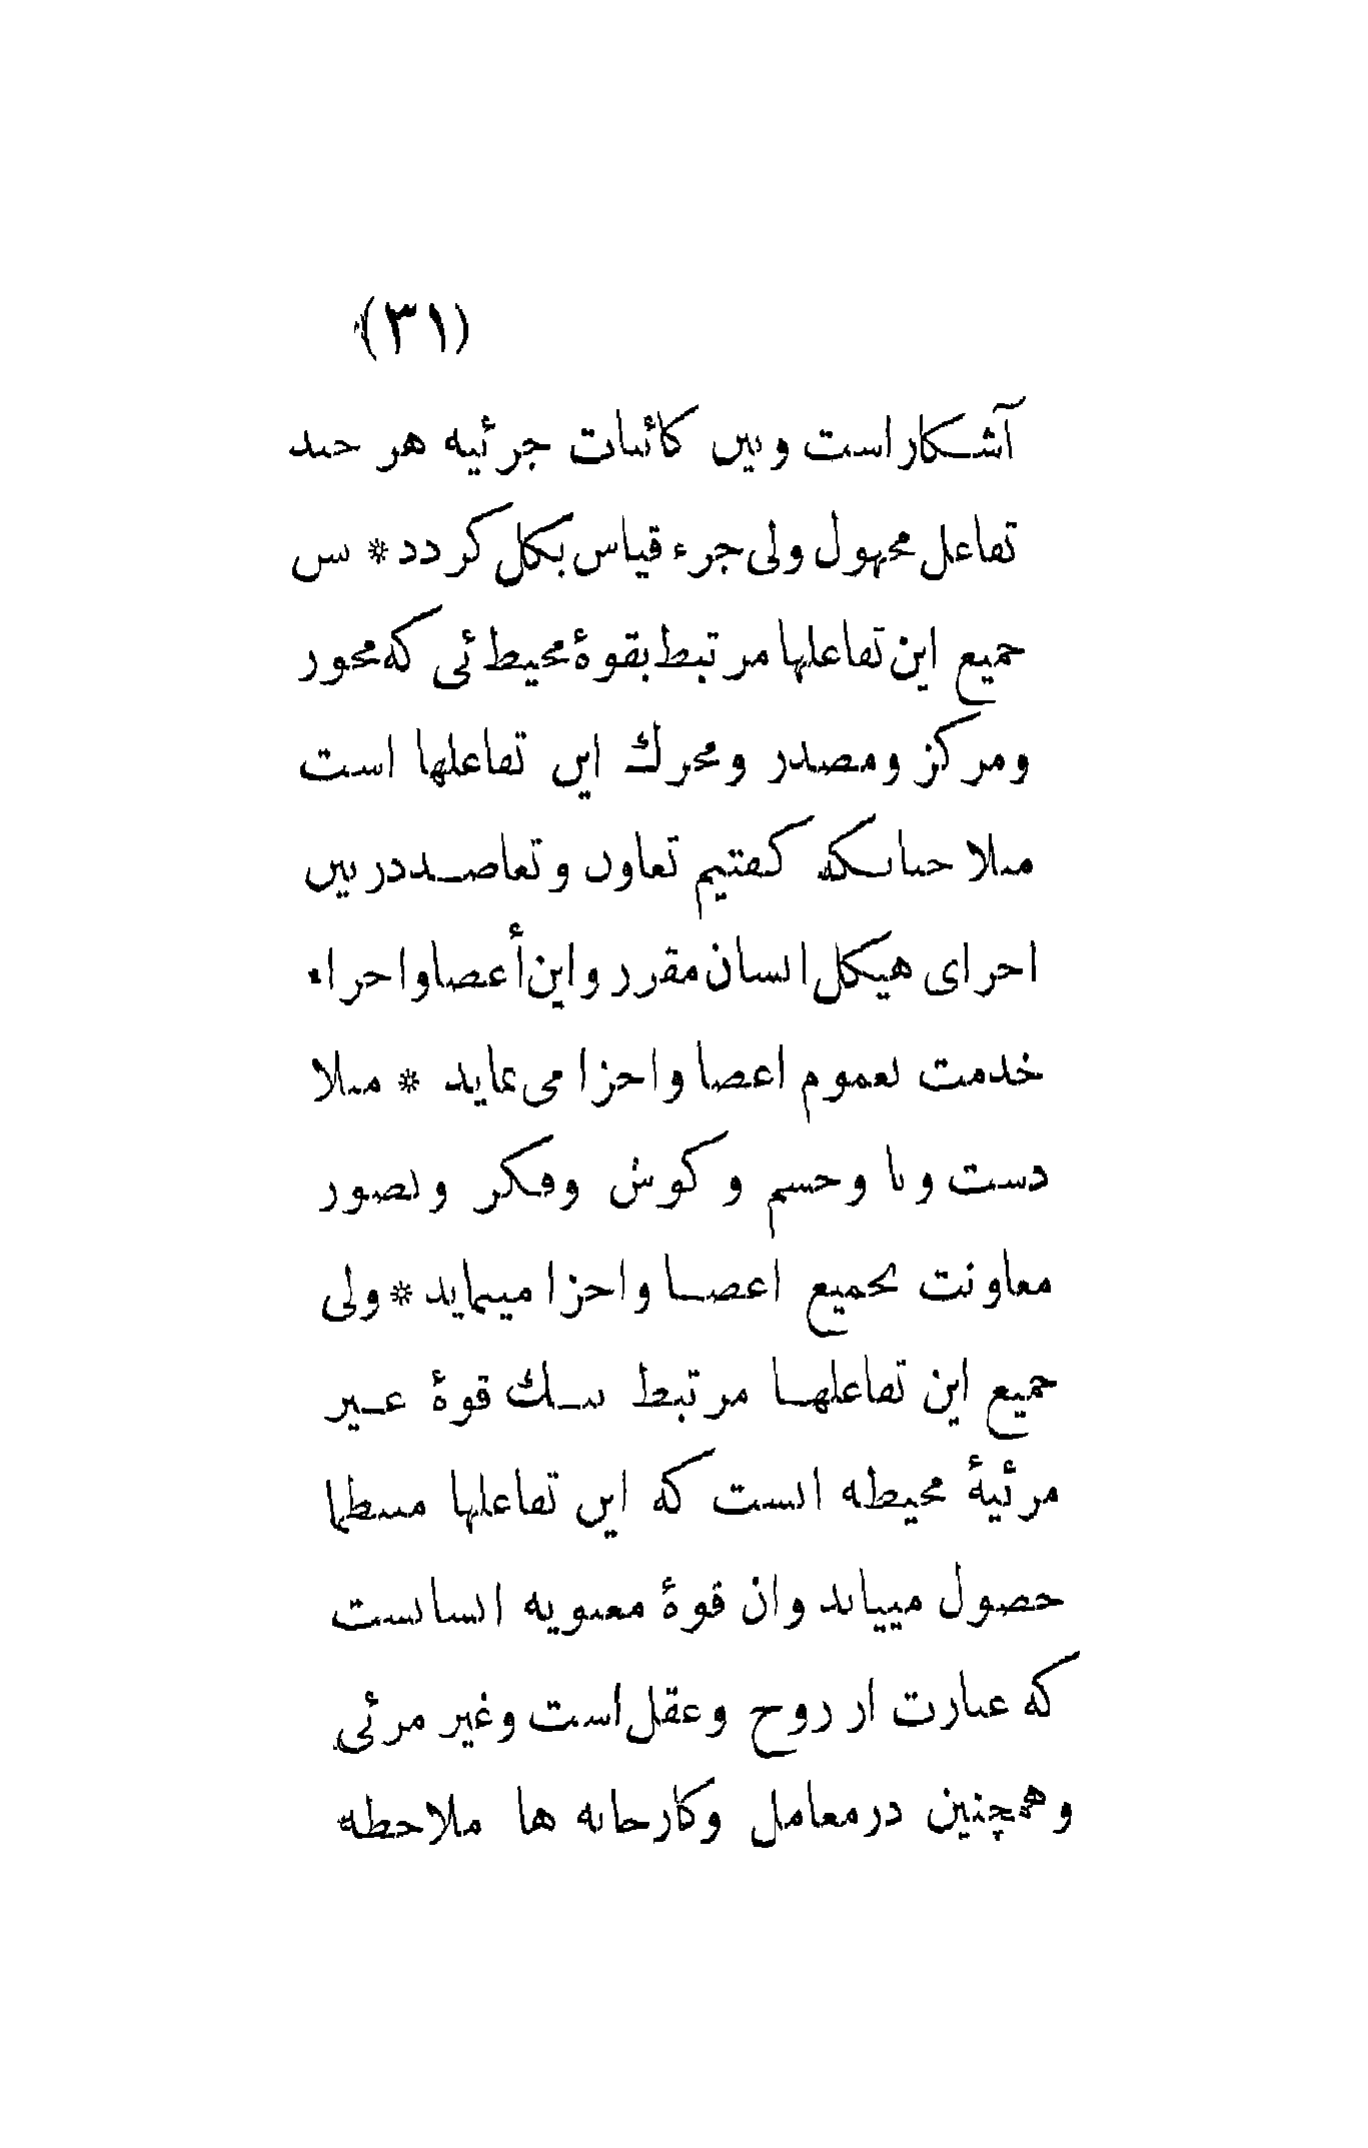 (٣١)
آشکار است و بین کائنات جزئیه هر چند
تفاعل مجهول ولی جزء قیاس بکل کردد * پس
جمیع این تفاعلها مرتبط بقوهٔ محیطئی که محور
و مرکز و مصدر و محرك این تفاعلها است
مثلا چنانکه کفتیم تعاون و تعاضد در بین
اجزای هیکل انسان مقرر و این أعضا و اجزاء
خدمت بعموم اعضا و اجزا می نماید * مثلا
دست و پا و چشم و کوش و فکر و تصور
معاونت بجمیع اعضا و اجزا مینماید * ولی
جمیع این تفاعلها مرتبط بیك قوهٔ غیر
مرئیهٔ محیطه است که این تفاعلها منتظما
حصول مییابد و ان قوهٔ معنویه انسانست
که عبارت از روح و عقل است و غیر مرئی
و همچنین در معامل و کارخانه ها ملاحظه